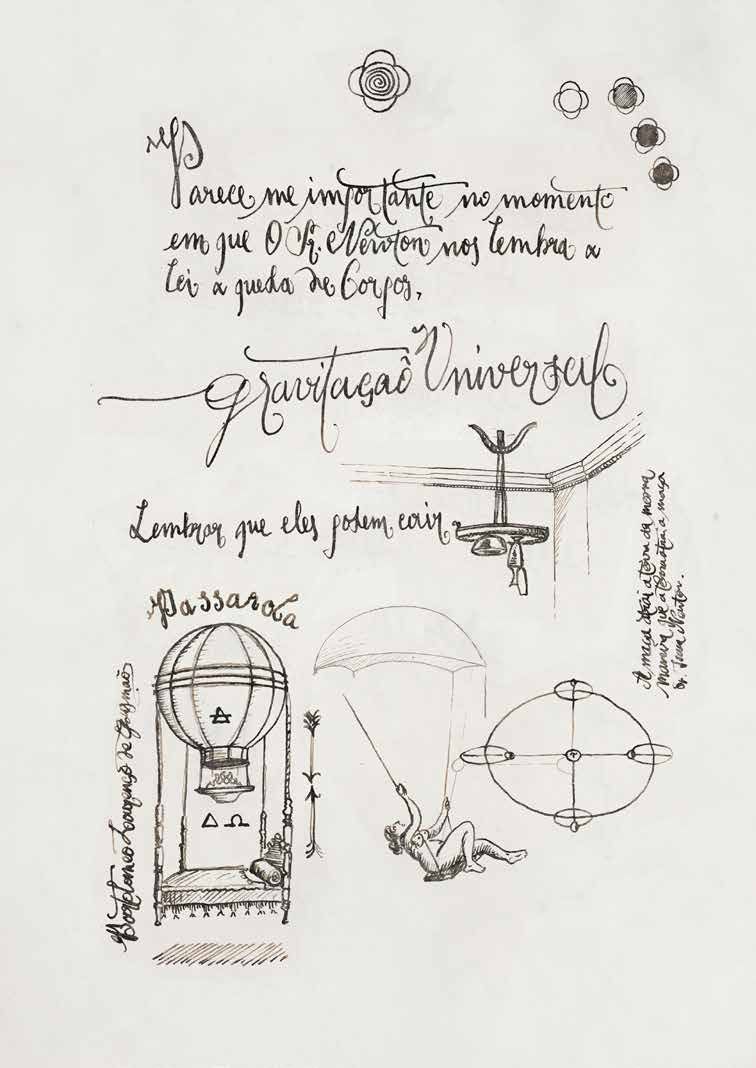 Parece me importante no momento
em que O Sr. Newton nos lembra a
lei a queda de Corpos,
gravitação Universal
Lembrar que eles podem cair.
A maçã atrai a terra da mesma
maneira que a terra atrai a maçã
by. Newton.
Passarola
Bartolomeo Lourenço de Gusmão
Δ
Δ Ω